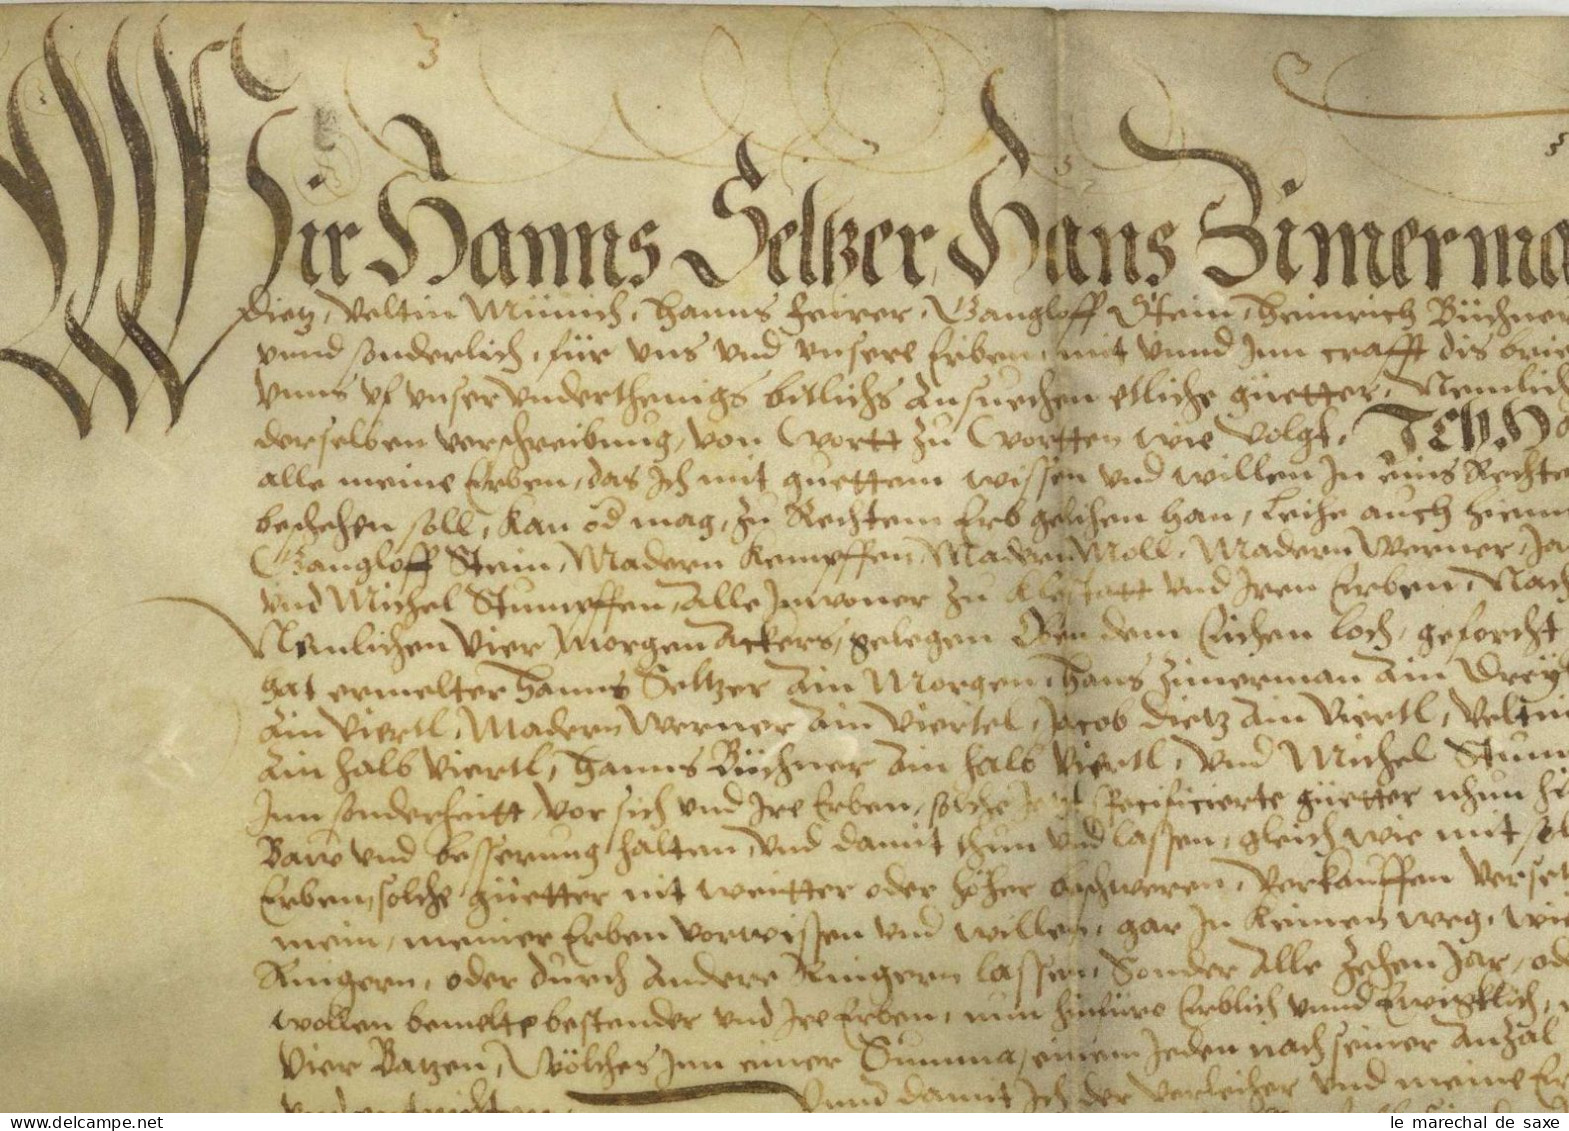 Wir Hanns Seltzer, Hans Zimerma
Dietz, Veltin Münich, Hanns Feirer, Gangloff Stein, Heinrich Büchner
vnnd sonderlich, für vns vnd vnsere Erben, mit vnnd Inn crafft dis brie
vnns vf vnser vnderthenigs bitlichs Ansuechen etliche güetter, Nemlich
derselben verschreibung, von Wortt zu Wortten wie volgt,
alle meine Erben, das Ich mit guettem wissen vnd willen In eins Rechte
beschehen soll, kan od mag, zu Rechtem Erb gelihen han, Leihe auch hiem
Gangloff Stein, Madern Kempffen, Madern Moll, Madern Werner, Ja
vnd Michel Stumpffen, Alle Inwoner zu Klestatt vnd Iren Erben, Nach
Nemlichen Vier Morgen Ackers, gelegen Oben dem Eichen Loch, geforcht
hat ermelter Hanns Seltzer Ain Morgen, Hans Zimerman Ain Drey
Ain Viertl, Madern Werner Ain Viertel, Jacob Dietz Ain Viertl, Veltin
Ain halb Viertl, Hanns Büchner Ain halb Viertl, Vnd Michel Stum
Inn sonderheitt, vor sich vnd Ire Erben, solche Jetzt specificierte güetter nhun hi
Baw vnd besserung halten, Vnd damit thun vnd lassen, gleich wie mit sol
Erben, solche güetter nit weitter oder höher beschweren, Verkauffen Verset
mein, meiner Erben vorwissen vnd willen, gar In keinen weg, wie
Ringern, oder durch Andere Ringern lassen, Sonder Alle Zehen Jar, od
wollen bemelte bestender vnd Ire Erben, nun hinfüro Erblich vnnd Ewigklich,
Vier Batzen, Wölches Inn einer Summa, einem Jeden nach seiner Anzal
Vnnd damit Ich der Verleiher vnd meine Er
le marechal de saxe